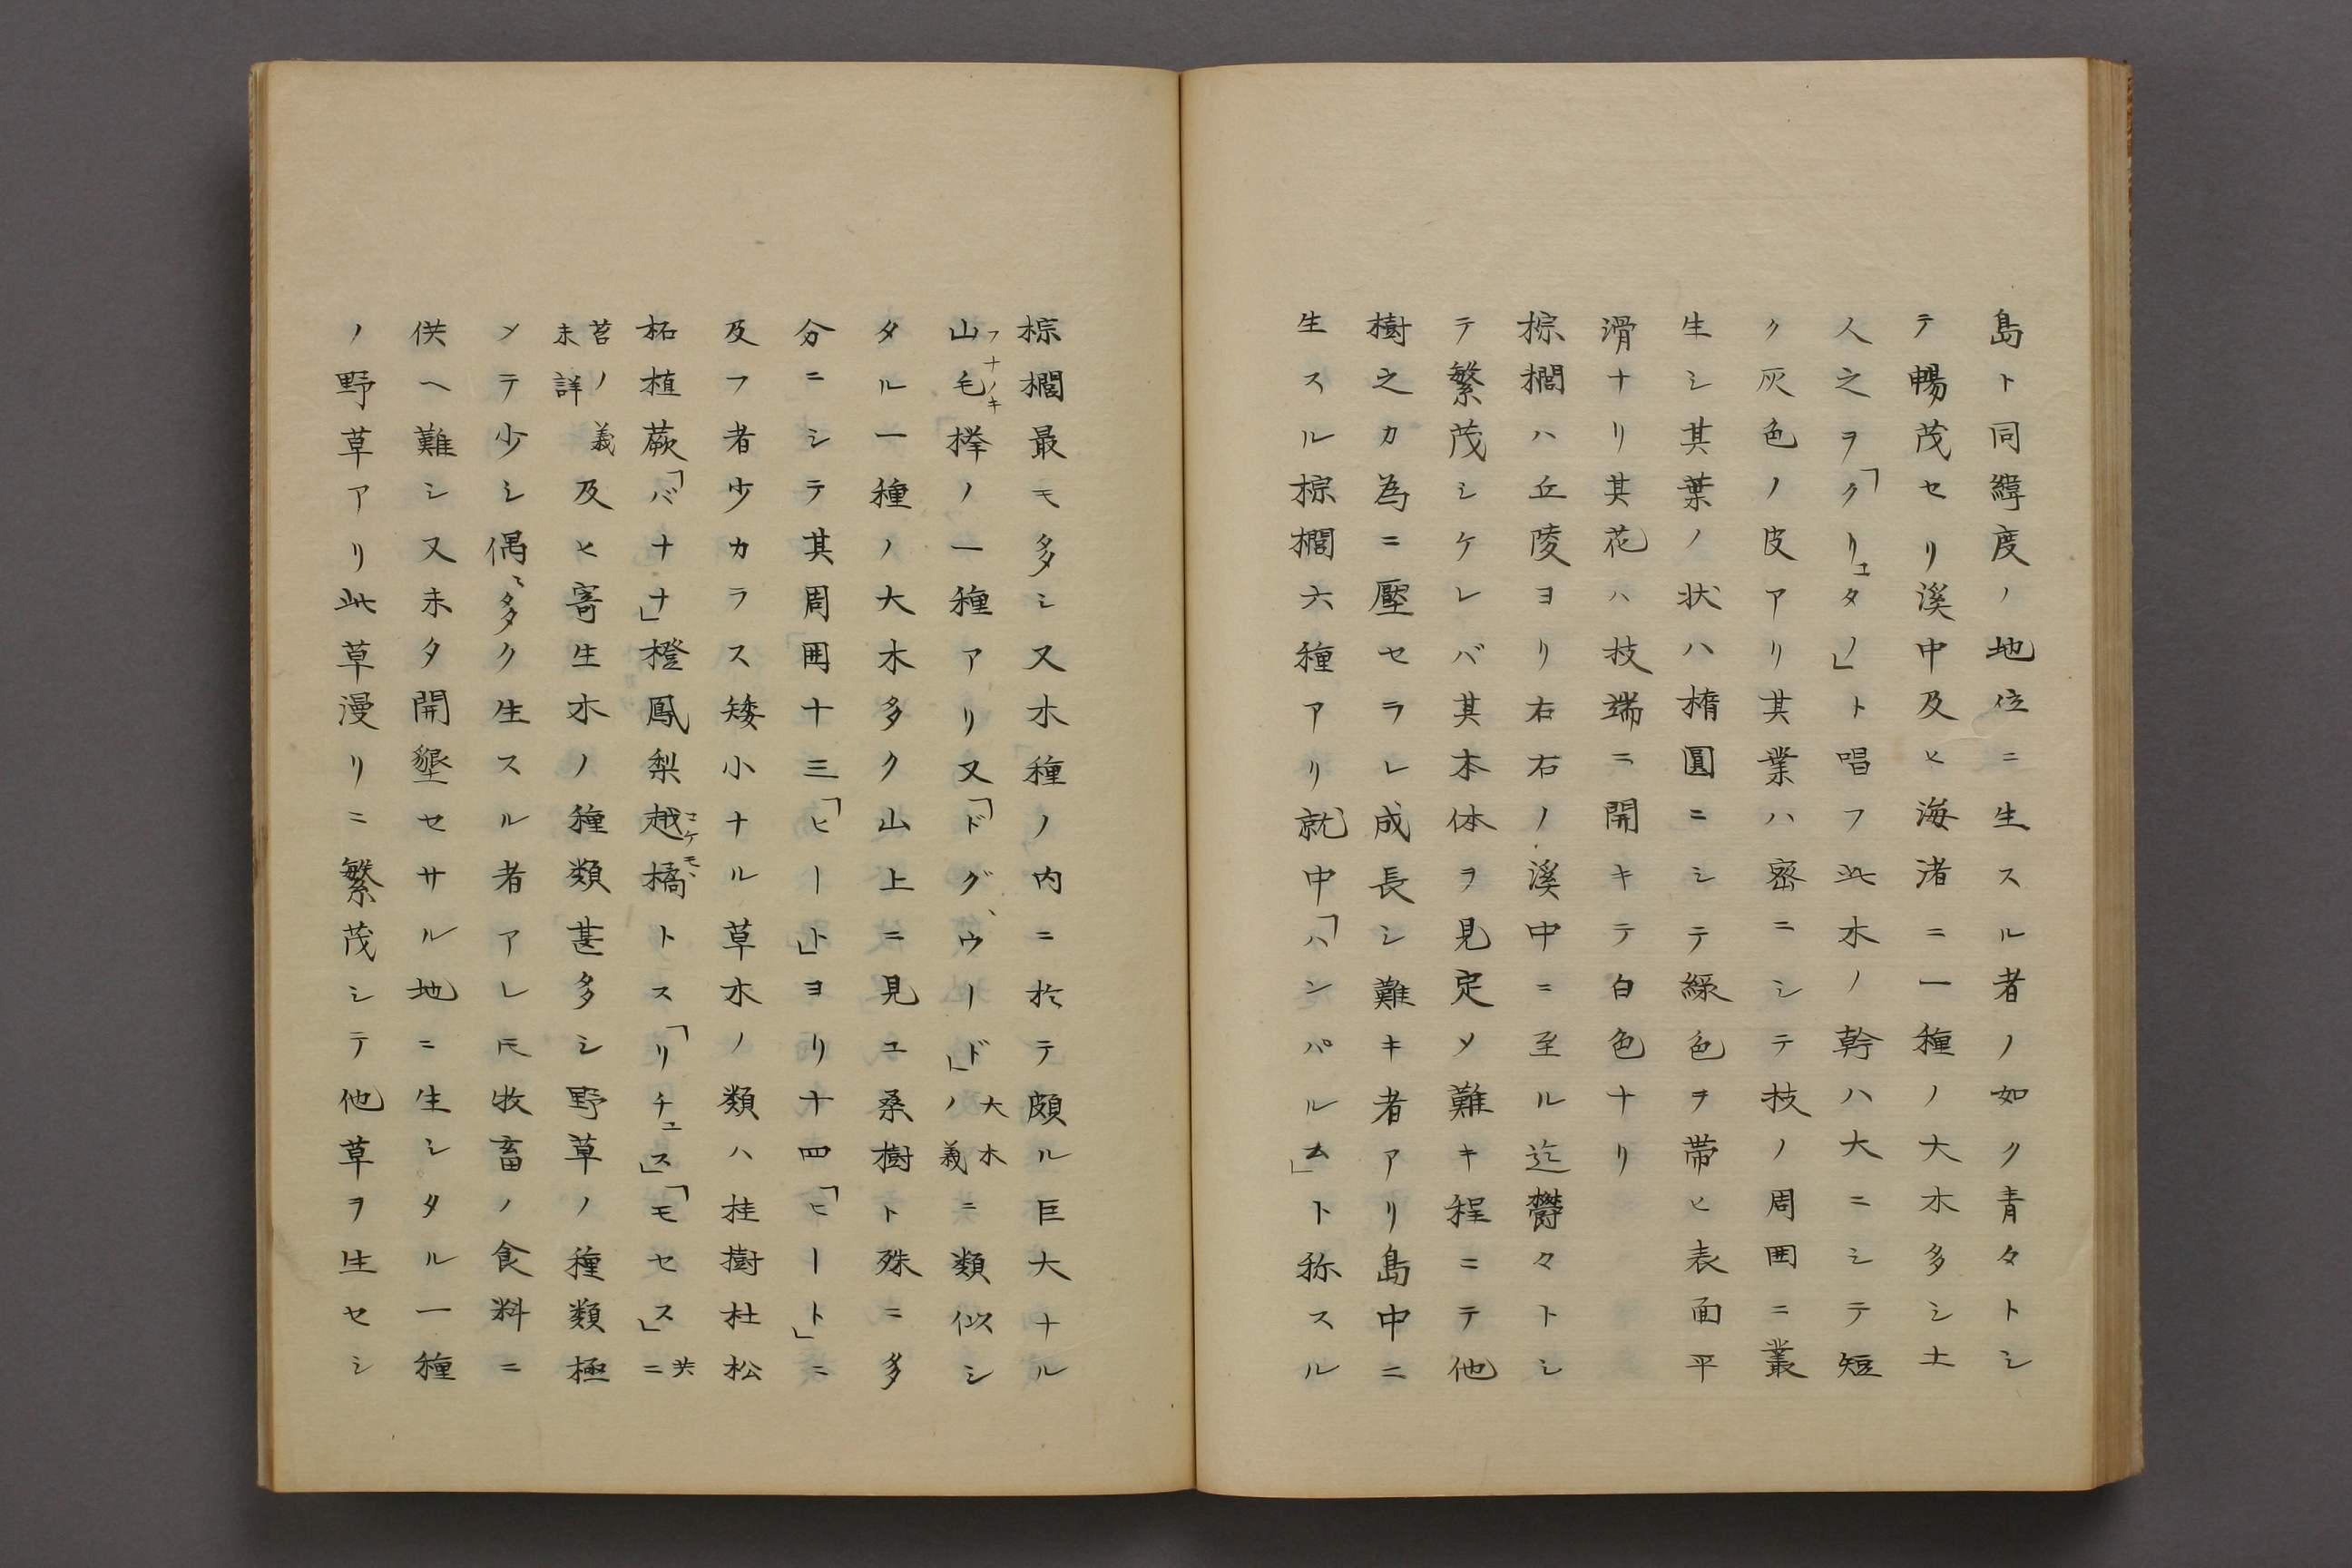 島ト同緯度ノ地位ニ生スル者ノ如ク青々トシ
テ暢茂セリ溪中及ヒ海渚ニ一種ノ大木多シ土
人之ヲ「クリュタノ」ト唱フ此木ノ幹ハ大ニシテ短
ク灰色ノ皮アリ其業ハ密ニシテ技ノ周囲ニ叢
生シ其葉ノ状ハ楕圓ニシテ緑色ヲ帯ヒ表面平
滑ナリ其花ハ枝端ニ開キテ白色ナリ
棕櫚ハ丘陵ヨリ右右ノ溪中ニ至ル迄欝々トシ
テ繁茂シケレバ其本体ヲ見定メ難キ程ニテ他
樹之カ為ニ壓セラレ成長シ難キ者アリ島中ニ
生スル棕櫚六種アリ就中「ハンパルム」ト称スル
棕櫚最モ多シ又木種ノ内ニ於テ頗ル巨大ナル
山毛欅ノ一種アリ又「ドグ、ウード」大木ノ義ニ類似シ
フナノキ
タル一種ノ大木多ク山上ニ見ユ桑樹ト殊ニ多
分ニシテ其周囲十三「ヒート」ヨリ十四「ヒート」ニ
及フ者少カラス矮小ナル草木ノ類ハ桂樹杜松
柘植蕨「バナナ」橙鳳梨越橘トス「リチュス」「モセス」共ニ
コケモヽ
苔ノ義未詳及ヒ寄生木ノ種類甚多シ野草ノ種類極
メテ少シ偶〻多ク生スル者アレ𪜈牧畜ノ食料ニ
供ヘ難シ又未タ開墾セサル地ニ生シタル一種
ノ野草アリ此草漫リニ繁茂シテ他草ヲ生セシ